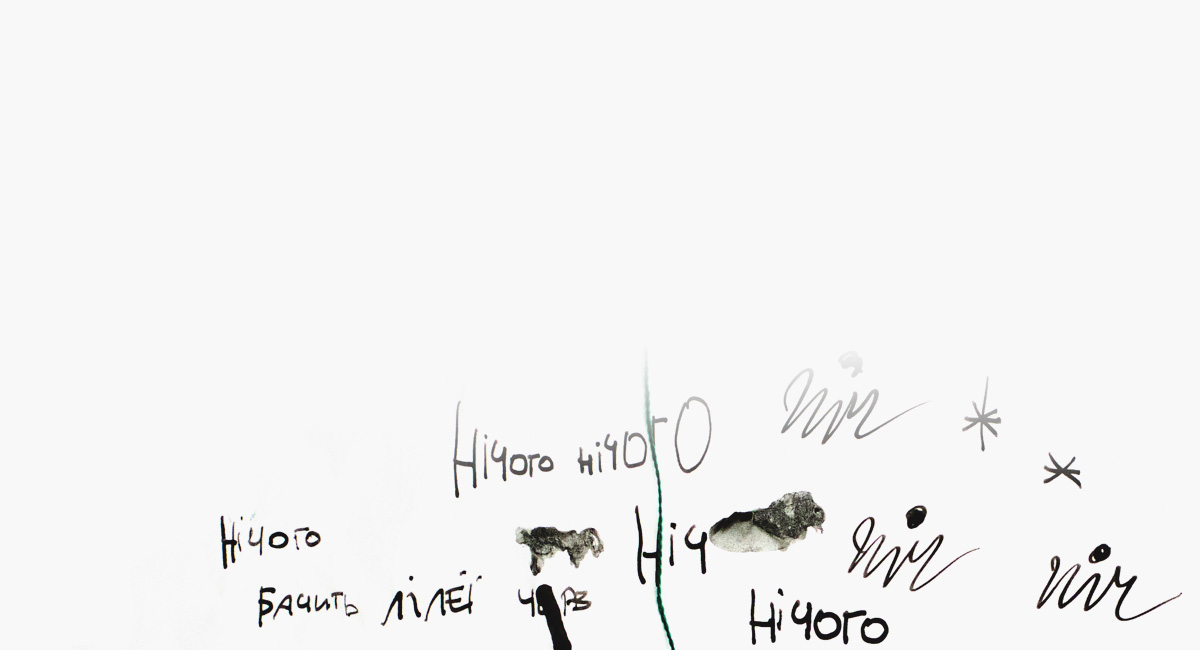 Нічого нічого ніч *
*
Нічого Ніч ніч ніч
бачить лілеї Нічого